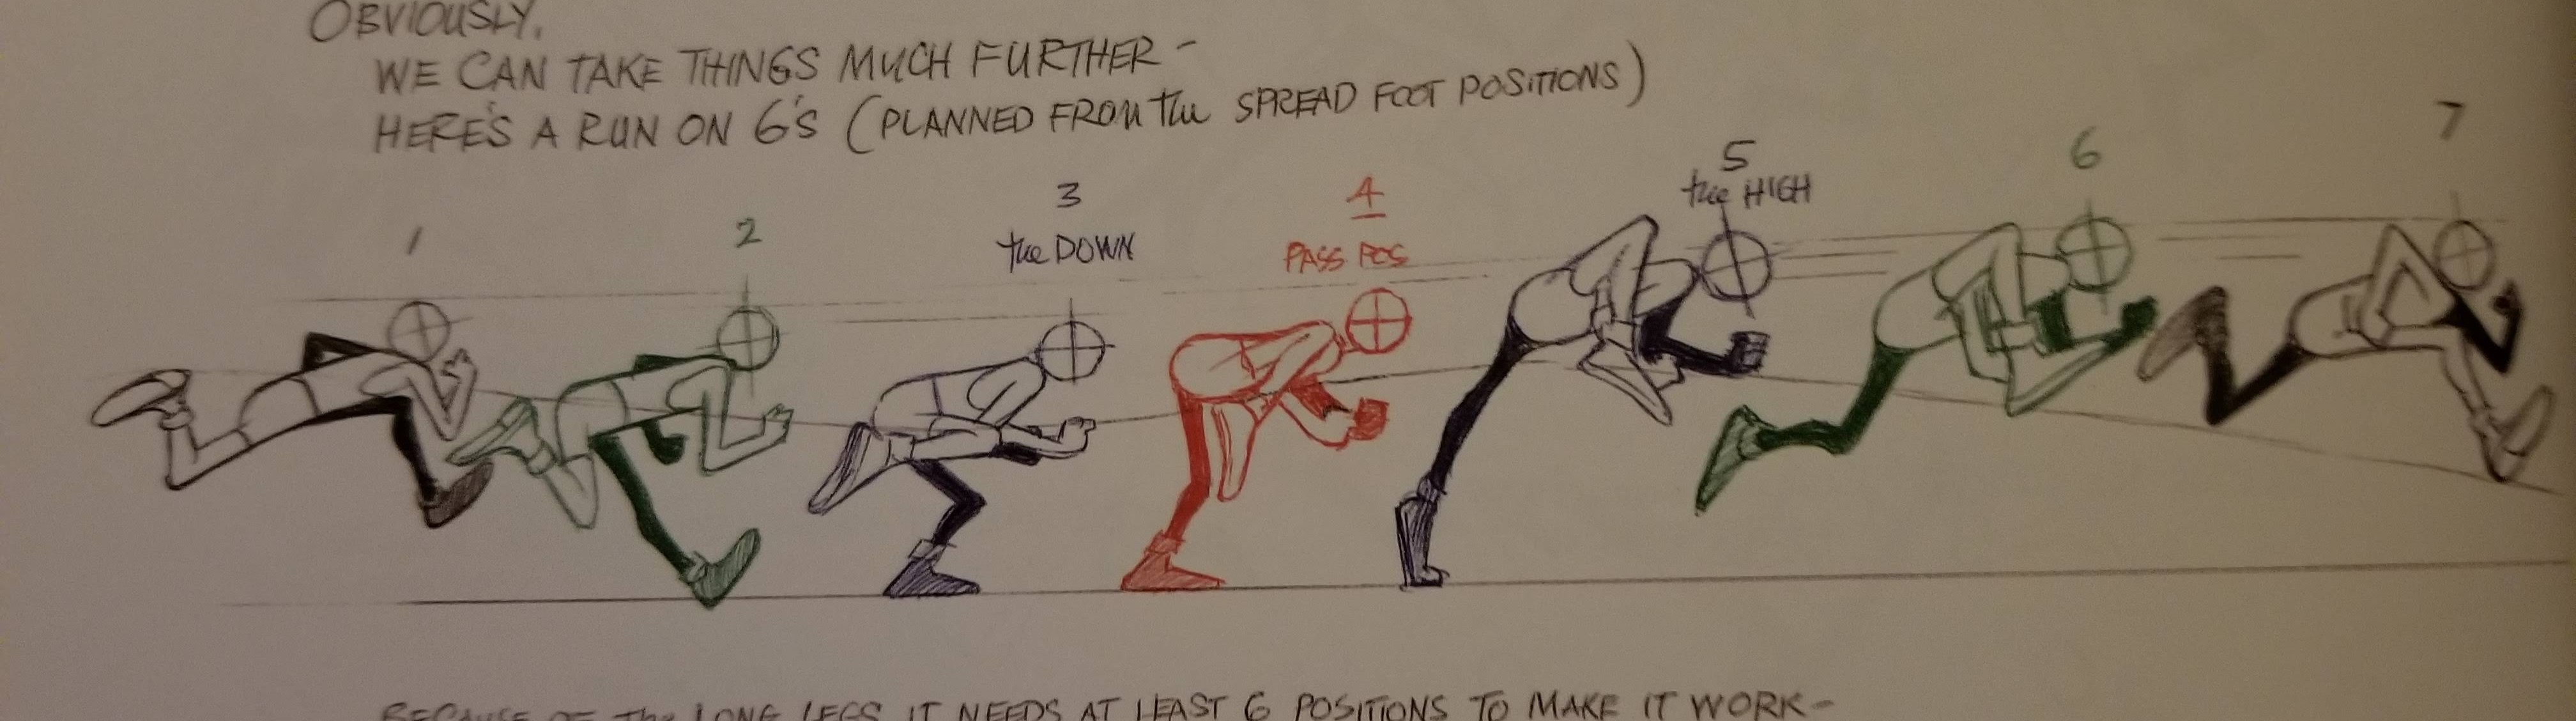 OBVIOUSLY,
WE CAN TAKE THINGS MUCH FURTHER -
HERE'S A RUN ON 6'S (PLANNED FROM the SPREAD FOOT POSITIONS)
1
2
3
the DOWN
4
PASS POS
5
the HIGH
6
7
BECAUSE OF the LONG LEGS IT NEEDS AT LEAST 6 POSITIONS TO MAKE IT WORK -